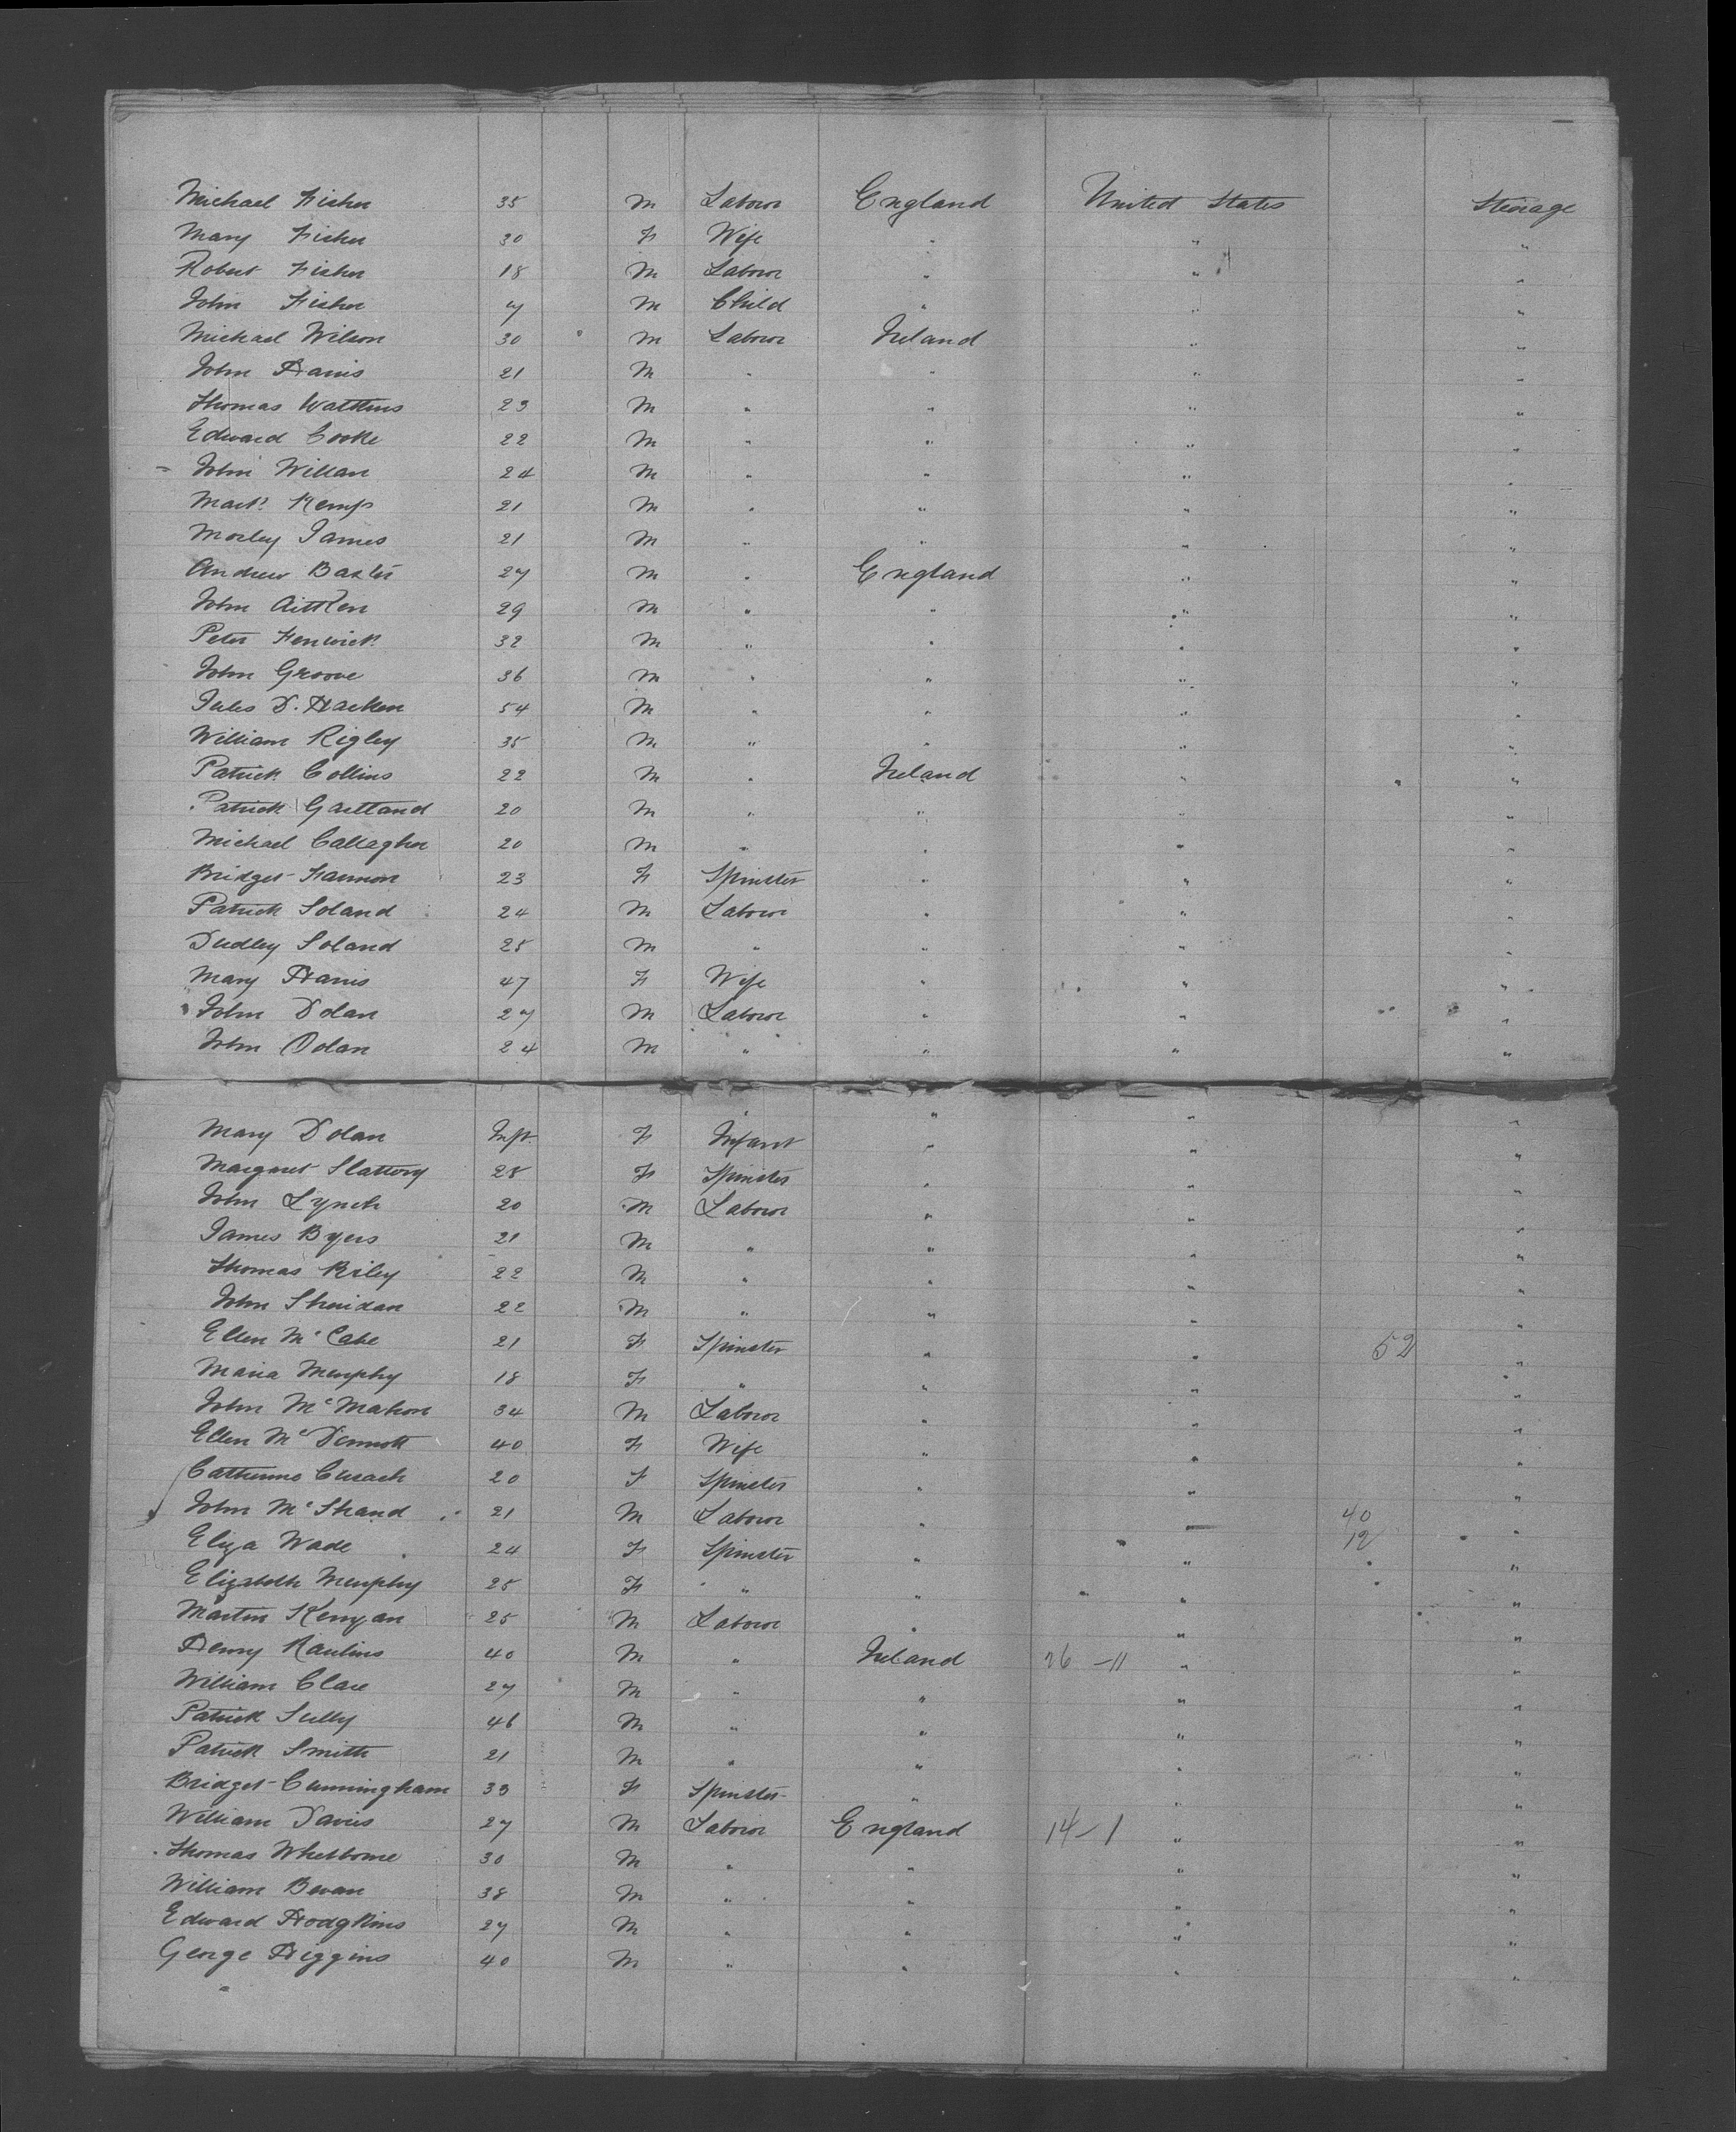 Michael Fisher 35 M Labour England United States Steerage
Mary Fisher 30 F Wife " " "
Robert Fisher 18 M Labour " " "
John Fisher 7 M Child " " "
Michael Wilson 30 M Labour Ireland " "
John Harris 21 M " " " "
Thomas Watkins 23 M " " " "
Edward Cooke 22 M " " " "
John Willan 24 M " " " "
Mark Kemp 21 M " " " "
Morley James 21 M " " " "
Andrew Baxter 27 M " England " "
John Aitken 29 M " " " "
Peter Fenwick 32 M " " " "
John Groove 36 M " " " "
Jules D. Hacken 54 M " " " "
William Rigley 35 M " " " "
Patrick Collins 22 M " Ireland " "
Patrick Gartland 20 M " " " "
Michael Callagher 20 M " " " "
Bridget Fannon 23 F Spinster " " "
Patrick Soland 24 M Labour " " "
Dudley Soland 25 M " " " "
Mary Harris 47 F Wife " " "
John Dolan 27 M Labour " " "
John Dolan 24 M " " " "
" " " "
Mary Dolan Inft F Infant " " "
Margaret Slattery 28 F Spinster " " "
John Lynch 20 M Labour " " "
James Byers 21 M " " " "
Thomas Riley 22 M " " " "
John Sheridan 22 M " " " "
Ellen McCabe 21 F Spinster " " 52 "
Maria Murphy 18 F " " " "
John McMahon 34 M Labour " " "
Ellen McDermott 40 F Wife " " "
Catherine Cusack 20 F Spinster " " "
John McShand 21 M Labour " " 40 "
Eliza Wade 24 F Spinster " " 12 "
Elizabeth Murphy 25 F " " " "
Martin Kenyan 25 M Labour " " "
Henry Raulins 40 M " Ireland 26 - 11 " "
William Clare 27 M " " " "
Patrick Sully 46 M " " " "
Patrick Smith 21 M " " " "
Bridget Cunningham 33 F Spinster " " "
William Davies 27 M Labour England 14 - 1 " "
Thomas Whetborne 30 M " " " "
William Bevan 38 M " " " "
Edward Hodgkins 27 M " " " "
George Higgins 40 M " " " "